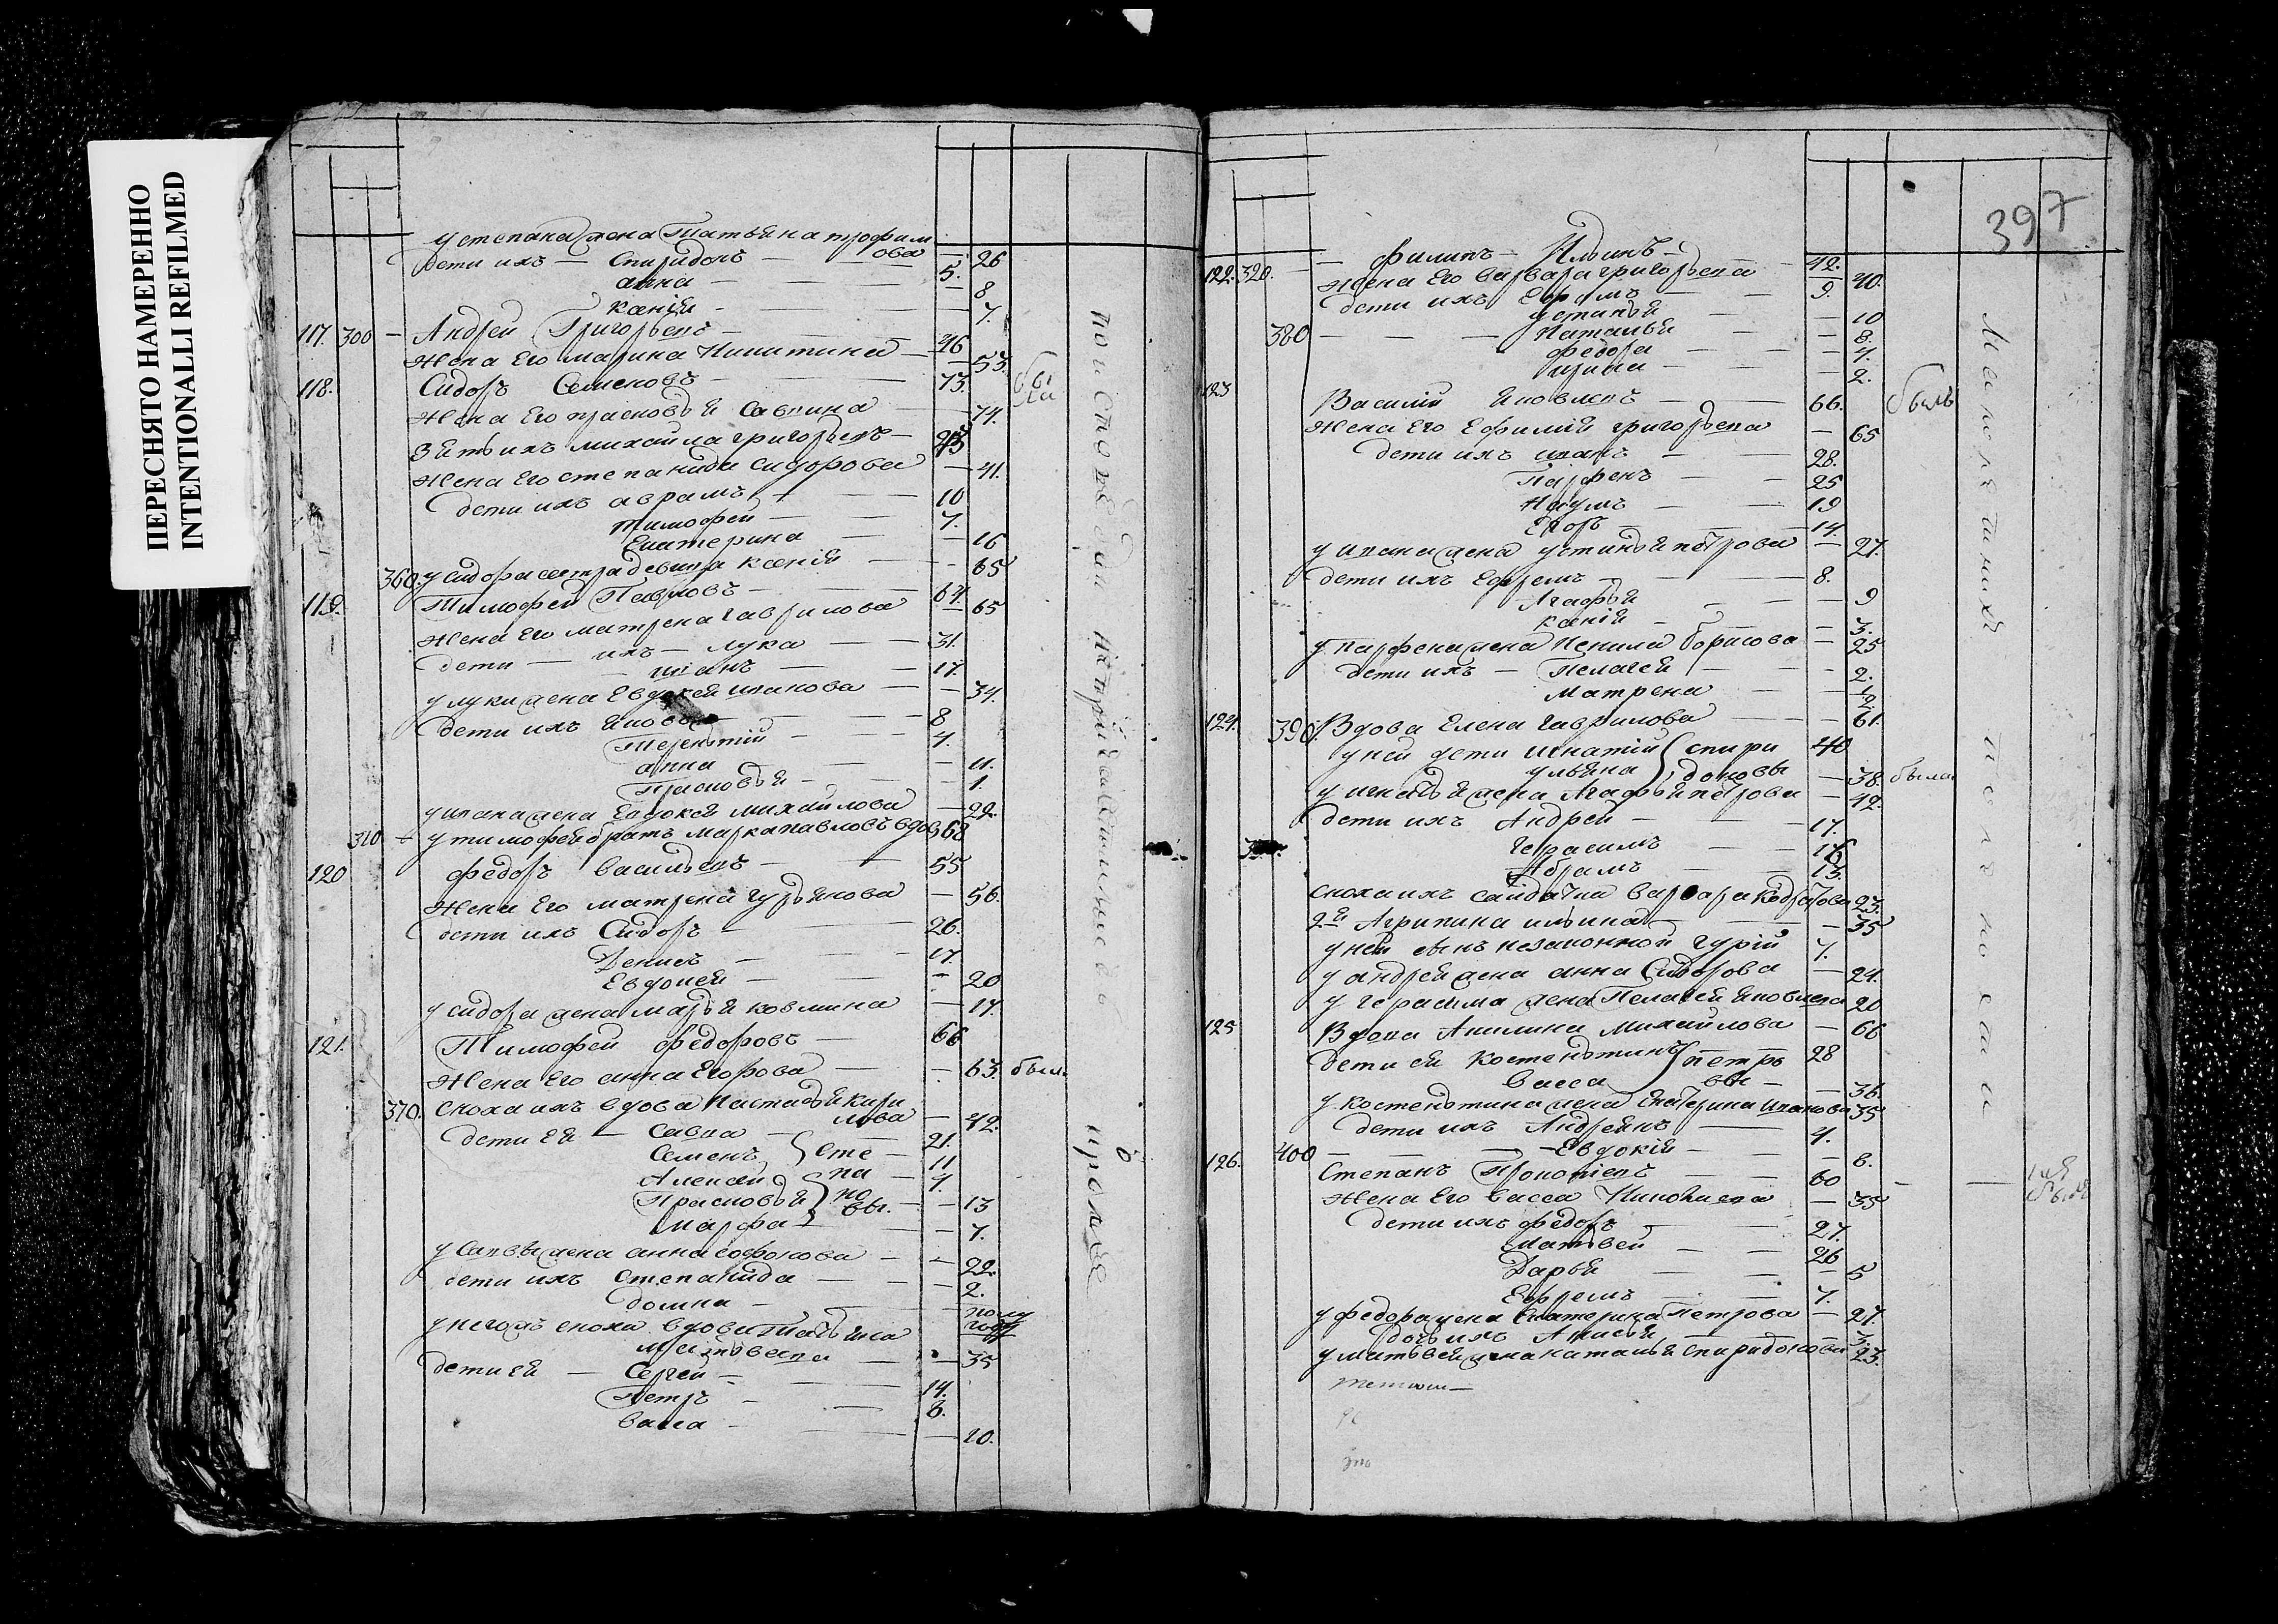 ПЕРЕСНЯТО НАМЕРЕННО
INTENTIONALLI REFILMED
у степана жена Татьяна трофим
ова — 26
дети ихъ — Спиридонъ — 5.
анна — 8
ксенія — 7.
117. 300 — Андрей Григорьевъ — 46
жена Его марина Никитина — 53.
118. Сидоръ Семеновъ — 73.
жена Его прасковья Савина — 74.
Зять ихъ михайла григорьевъ — 43
жена Его степанида сидорова — 41.
дети ихъ аврамъ — 10
тимофей — 7.
Екатерина — 16
360. у сидора сестра девица ксенія — 65
119. Тимофей Павловъ — 64.
жена Его матрена гаврилова — 65
дети — ихъ — лука — 31.
иванъ — 17.
у луки жена Евдокея иванова — 34.
дети ихъ яковъ — 8
Терентій — 4.
анна — 11.
Прасковья — 1.
у ивана жена Евдокея михайлова — 22.
310 у тимофея братъ марка павловъ вдов 68
120 федоръ васильевъ — 55
жена Его матрена гурьянова — 56.
дети ихъ Сидоръ — 26.
Денисъ — 17.
Евдокея — 20
у сидора жена марья ковмина — 17.
121. Тимофей федоровъ — 66
жена Его анна Егорова — 63. были
370. сноха ихъ вдова Настасья кири
лова — 42.
дети Ея — Савва — 21.
Семенъ — 11
Алексей — 4.
Прасковья — 13
марфа — 7.
Сте
па
но
вы.
у Саввы жена анна софонова — 22.
дети ихъ Степанида — 2.
домна — полу
году
у него жъ сноха вдова Татьяна
матвеева — 35
дети Ея — Сергей — 14.
Петръ — 8.
васса — 10.
бы
ли
по исповедаи не причастились
в
397
122. 320. — филипъ Ильинъ — 42.
жена Его варвара григорьева — 40.
дети ихъ Ефимъ — 9.
устинья — 10
380 — Наталья — 8.
федора — 4.
ирина — 2.
123 Василий Яковлевъ — 66. былъ
жена Его Ефимія григорьева — 65
дети ихъ иванъ — 28.
Парфенъ — 25
Наумъ — 19
Егоръ — 14.
у ивана жена устинья петрова — 27.
дети ихъ Ефремъ — 8.
Агафья — 9
ксенія — 3.
у парфена жена Ненила борисова — 25
дети ихъ — Пелагея — 2.
матрена — 1/2
124. 390. Вдова Елена гаврилова — 61.
у ней дети игнатій спири 40
ульяна доновы — 38. была
у игнатья жена Агафья петрова — 42.
дети ихъ Андрей — 17.
Герасимъ — 16
Абрамъ — 13.
сноха ихъ салдатка варвара кодратова 23.
2я Агрипина ильина — 35
у ней сынъ незаконной гурій 7.
у андрея жена анна Сидорова — 24.
у герасима жена Пелагея яковлева 20
125 Вдова Акилина михайлова — 66
дети ея костентинъ петро 28
васса вы — 36.
у костентина жена Екатерина иванова 35
дети ихъ Андреянъ — 4.
400 — Евдокія — 8.
126. Степанъ Прокопіевъ — 60
жена Его васса Никонаева — 35
дети ихъ федоръ — 27.
матвей — 26
Дарья — 5
Ефремъ — 7.
у федора жена Екатерина Петрова — 27.
дочь ихъ Анисья — 3.
у матвея жена наталья спиридонова 23.